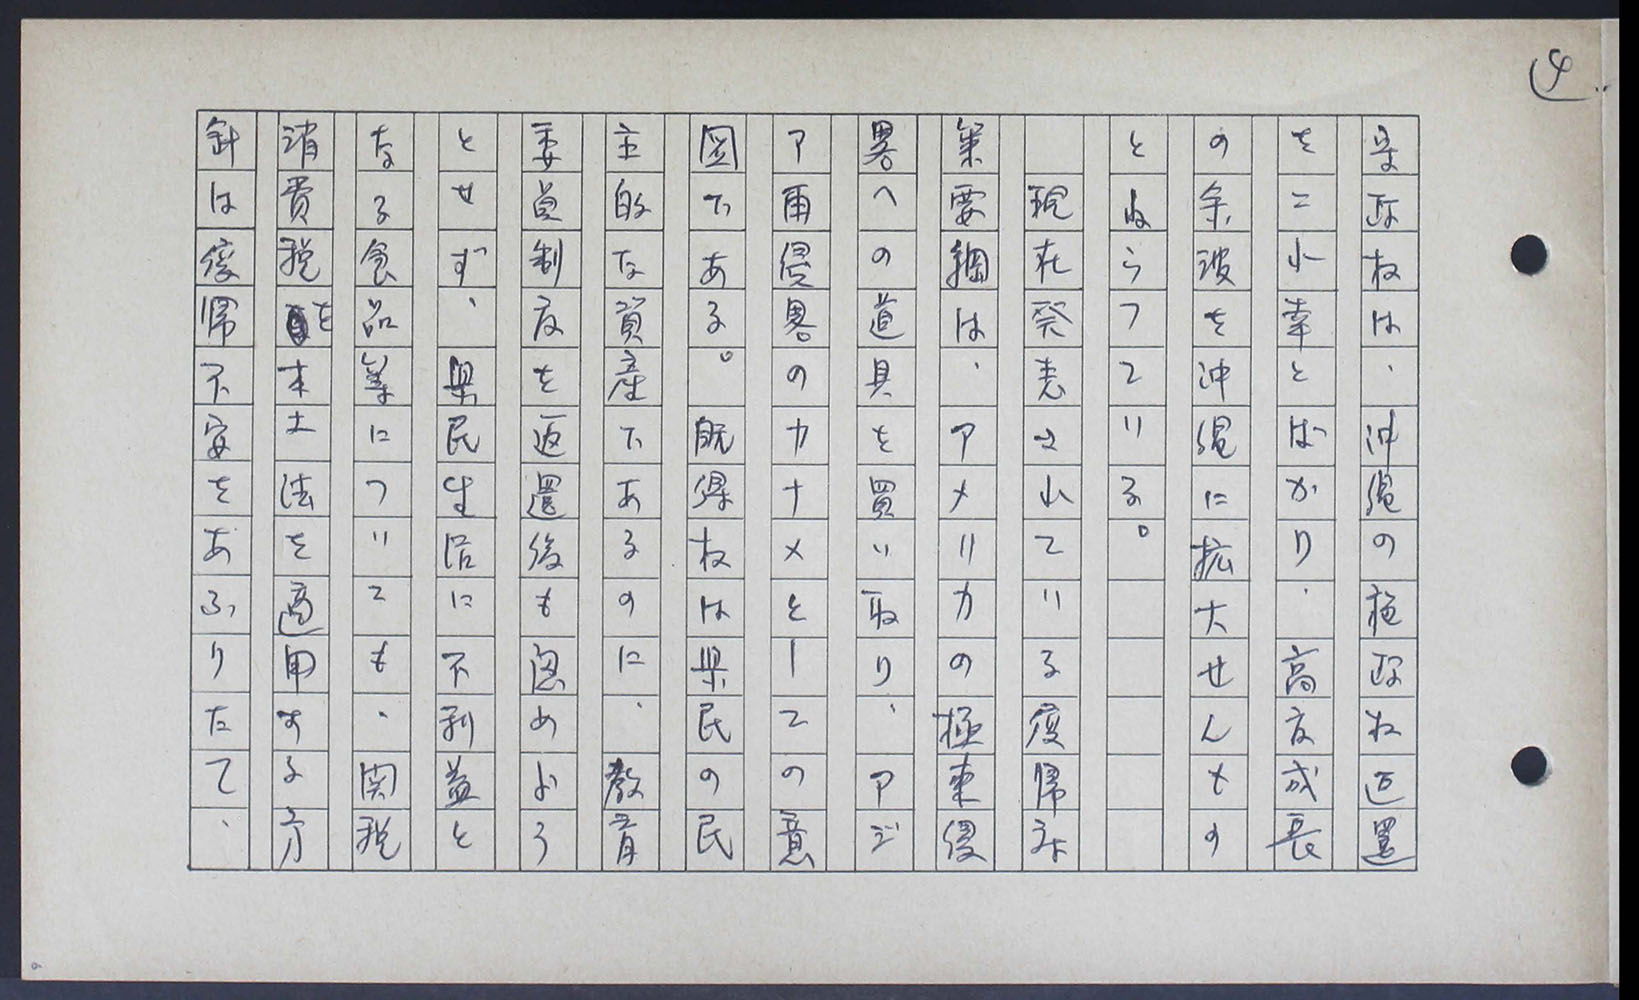 4
守政权は、沖縄の施政权返還
をこれ幸とばかり、高度成長
の余波を沖縄に拡大せんもの
とねらつている。
　現在発表されている復帰対
策要綱は、アメリカの極東侵
畧への道具を買い取り、アジ
ア再侵畧のカナメとしての意
図である。既得权は県民の民
主的な資産であるのに、教育
委員制度を返還後も認めよう
とせず、県民生活に不利益と
なる食品等についても、関税
消費税を本土法を適用する方
針は復帰不安をあふりたて、